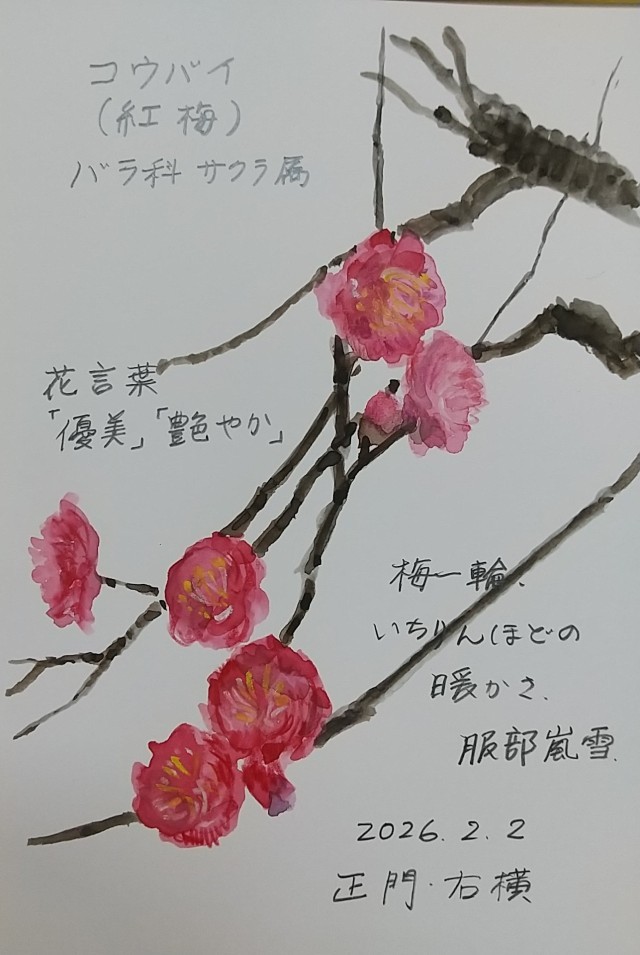 コウバイ
(紅梅)
バラ科 サクラ属
花言葉
「優美」「艶やか」
梅一輪、
いちりんほどの
暖かさ、
服部嵐雪
2026.2.2
正門・右横